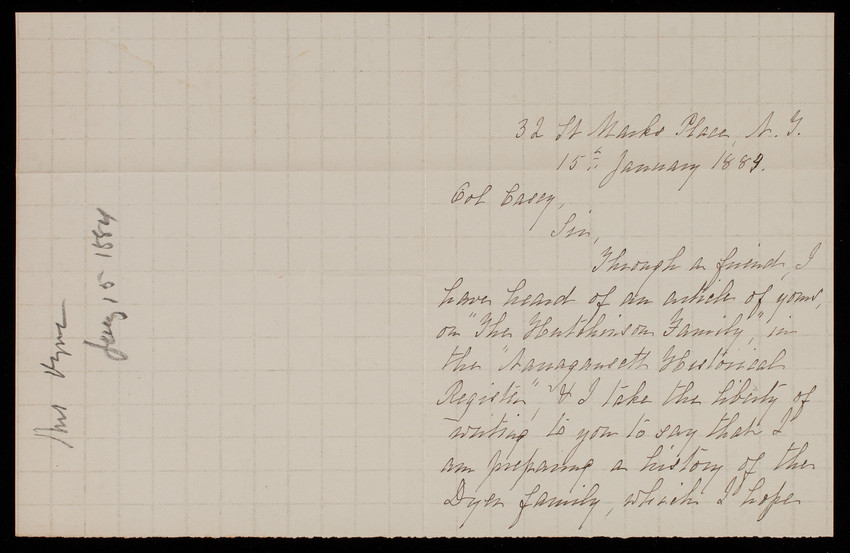 32 St Marks Place, N. Y.
15th January 1884.
Col Casey,
Sir,
Through a friend, I
have heard of an article of yours,
on "The Hutchinson Family," in
the "Narragansett Historical
Register", & I take the liberty of
writing to you to say that I
am preparing a history of the
Dyer family, which I hope
Mrs
Jany 15 1884